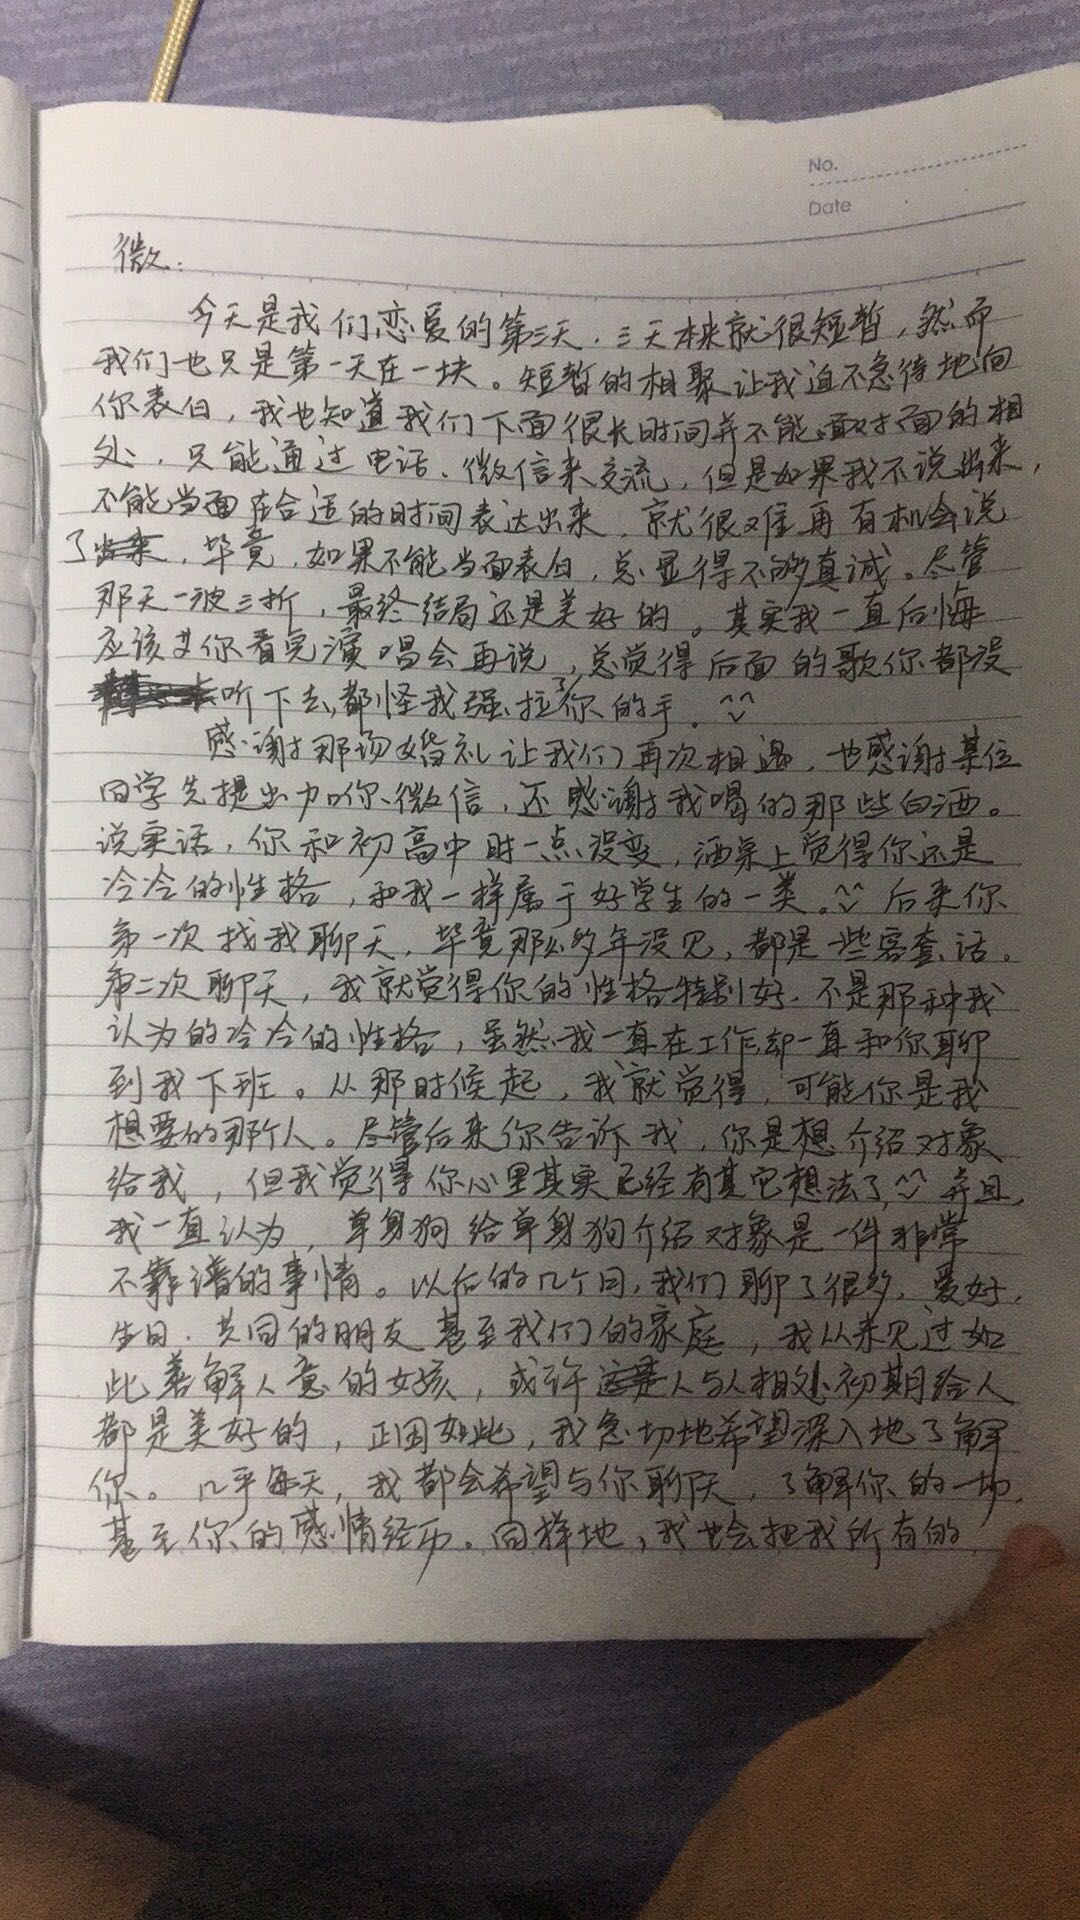 No.
Date
微:
今天是我们恋爱的第三天，三天本来就很短暂，然而
我们也只是第一天在一块。短暂的相聚让我迫不急待地向
你表白，我也知道我们下面很长时间并不能面对面的相
处，只能通过电话、微信来交流，但是如果我不说出来，
不能当面在合适的时间表达出来，就很难再有机会说
了，毕竟，如果不能当面表白，总显得不够真诚。尽管
那天一波三折，最终结局还是美好的。其实我一直后悔
应该等你看完演唱会再说，总觉得后面的歌你都没
听下去，都怪我强拉了你的手。^^
感谢那场婚礼让我们再次相遇，也感谢某位
同学先提出加你微信，还感谢我喝的那些白酒。
说实话，你和初高中时一点没变，酒桌上觉得你还是
冷冷的性格，和我一样属于好学生的一类。^^后来你
第一次找我聊天，毕竟那么多年没见，都是一些客套话。
第二次聊天，我就觉得你的性格特别好，不是那种我
认为的冷冷的性格，虽然我一直在工作却一直和你聊
到我下班。从那时候起，我就觉得，可能你是我
想要的那个人。尽管后来你告诉我，你是想介绍对象
给我，但我觉得你心里其实已经有其它想法了，^^并且，
我一直认为，单身狗给单身狗介绍对象是一件非常
不靠谱的事情。以后的几个月，我们聊了很多，爱好、
生日、共同的朋友甚至我们的家庭，我从来见过如
此善解人意的女孩，或许这是人与人相处初期给人
都是美好的，正因如此，我急切地希望深入地了解
你。几乎每天，我都会希望与你聊天，了解你的一切，
甚至你的感情经历。同样地，我也会把我所有的